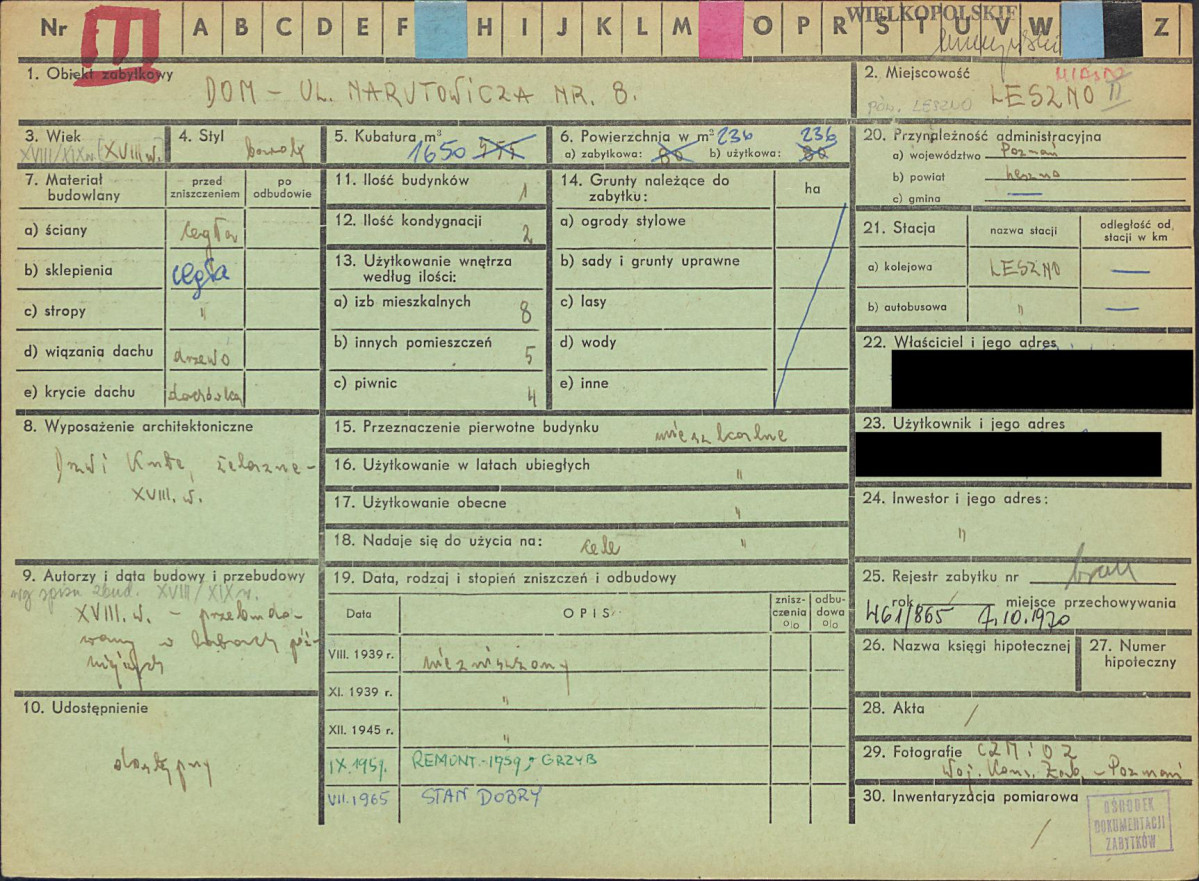 Nr III A B C D E F H I J K L M O P R S T U V W Z
WIELKOPOLSKIE
1. Obiekt zabytkowy
DOM – UL. NARUTOWICZA NR. 8.
2. Miejscowość
MIASTO
POW. LESZNO LESZNO II
3. Wiek
XVIII/XIX w. (XVIII w.
4. Styl
5. Kubatura m³
1650
6. Powierzchnia w m² 236 236
a) zabytkowa: 80 b) użytkowa: 80
20. Przynależność administracyjna
a) województwo Poznań
b) powiat Leszno
c) gmina —
7. Materiał budowlany
przed zniszczeniem
po odbudowie
a) ściany cegła
b) sklepienia cegła
c) stropy "
d) wiązania dachu drzewo
e) krycie dachu dachówka
11. Ilość budynków 1
12. Ilość kondygnacji 2
13. Użytkowanie wnętrza
według ilości:
a) izb mieszkalnych 8
b) innych pomieszczeń 5
c) piwnic 4
14. Grunty należące do
zabytku:
ha
a) ogrody stylowe
b) sady i grunty uprawne
c) lasy
d) wody
e) inne
21. Stacja
nazwa stacji
odległość od
stacji w km
a) kolejowa LESZNO —
b) autobusowa " —
22. Właściciel i jego adres
23. Użytkownik i jego adres
8. Wyposażenie architektoniczne
Drzwi kute, żelazne –
XVIII. w.
15. Przeznaczenie pierwotne budynku mieszkalne
16. Użytkowanie w latach ubiegłych "
17. Użytkowanie obecne "
18. Nadaje się do użycia na: cele "
24. Inwestor i jego adres:
"
9. Autorzy i data budowy i przebudowy
wg spisu zbud. XVIII/XIX w.
XVIII. w. – przebudo-
wany w latach póź-
niejszych
19. Data, rodzaj i stopień zniszczeń i odbudowy
Data
OPIS
znisz-
czenia
o|o
odbu-
dowa
o|o
VIII. 1939 r. niezniszczony
XI. 1939 r. "
XII. 1945 r. "
IX. 1959. REMONT – 1959, GRZYB
VII. 1965 STAN DOBRY
25. Rejestr zabytku nr brak
rok / miejsce przechowywania
461/865 7.10.1970
26. Nazwa księgi hipotecznej
27. Numer
hipoteczny
10. Udostępnienie
dostępny
28. Akta /
29. Fotografie CZM i OZ
Woj. Kons. Zab. – Poznań
30. Inwentaryzacja pomiarowa
/
OŚRODEK
DOKUMENTACJI
ZABYTKÓW